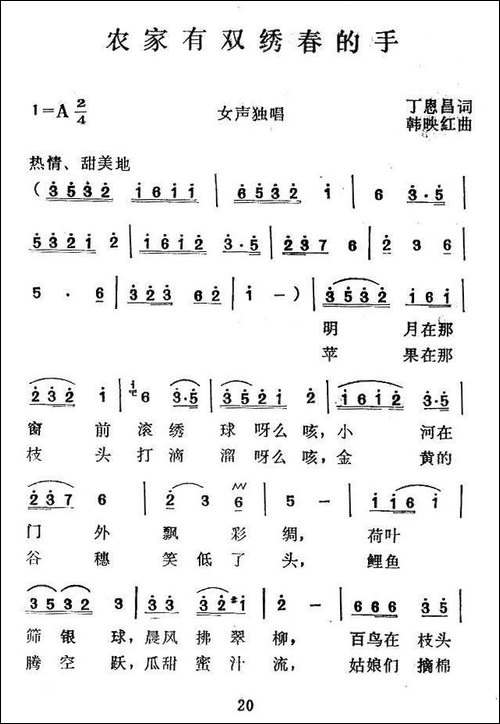 农家有双绣春的手
1=A 2/4
女声独唱
丁恩昌词
韩映红曲
热情、甜美地
(3532 1611 | 3532 1 | 6 3·5 |
5321 2 | 1612 3·5 | 2376 6 | 2 3 6 |
5 · 6 | 323 62 | 1 —) | 3532 161 |
明 月在那
苹 果在那
232 1 | 6 3·5 | 2352 1 | 1612 3·5 |
窗 前 滚绣 球 呀么 咳，小 河在
枝 头 打滴 溜 呀么 咳，金 黄的
2376 6 | 2 3 6 | 5 — | 116 1 |
门 外 飘 彩 绸， 荷叶
谷 穗 笑 低 了 头， 鲤鱼
3532 3 | 3·532 321 | 2 — | 666 3·5 |
筛 银 球，晨风 拂 翠 柳， 百鸟在 枝头
腾 空 跃，瓜甜 蜜 汁 流， 姑娘们 摘棉
20